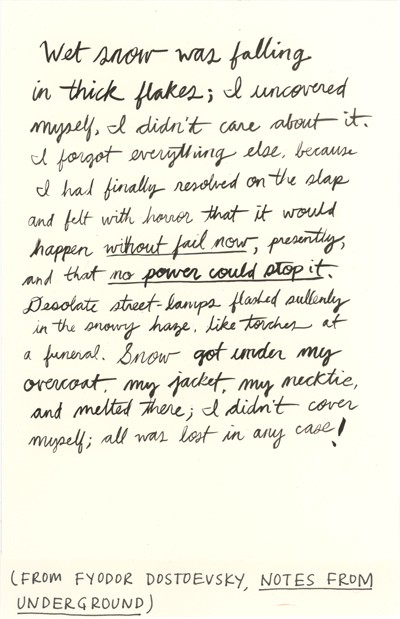 Wet snow was falling
in thick flakes; I uncovered
myself, I didn't care about it.
I forgot everything else, because
I had finally resolved on the slap
and felt with horror that it would
happen without fail now, presently,
and that no power could stop it.
Desolate street-lamps flashed sullenly
in the snowy haze, like torches at
a funeral. Snow got under my
overcoat, my jacket, my necktie,
and melted there; I didn't cover
myself; all was lost in any case!
(FROM FYODOR DOSTOEVSKY, NOTES FROM
UNDERGROUND)